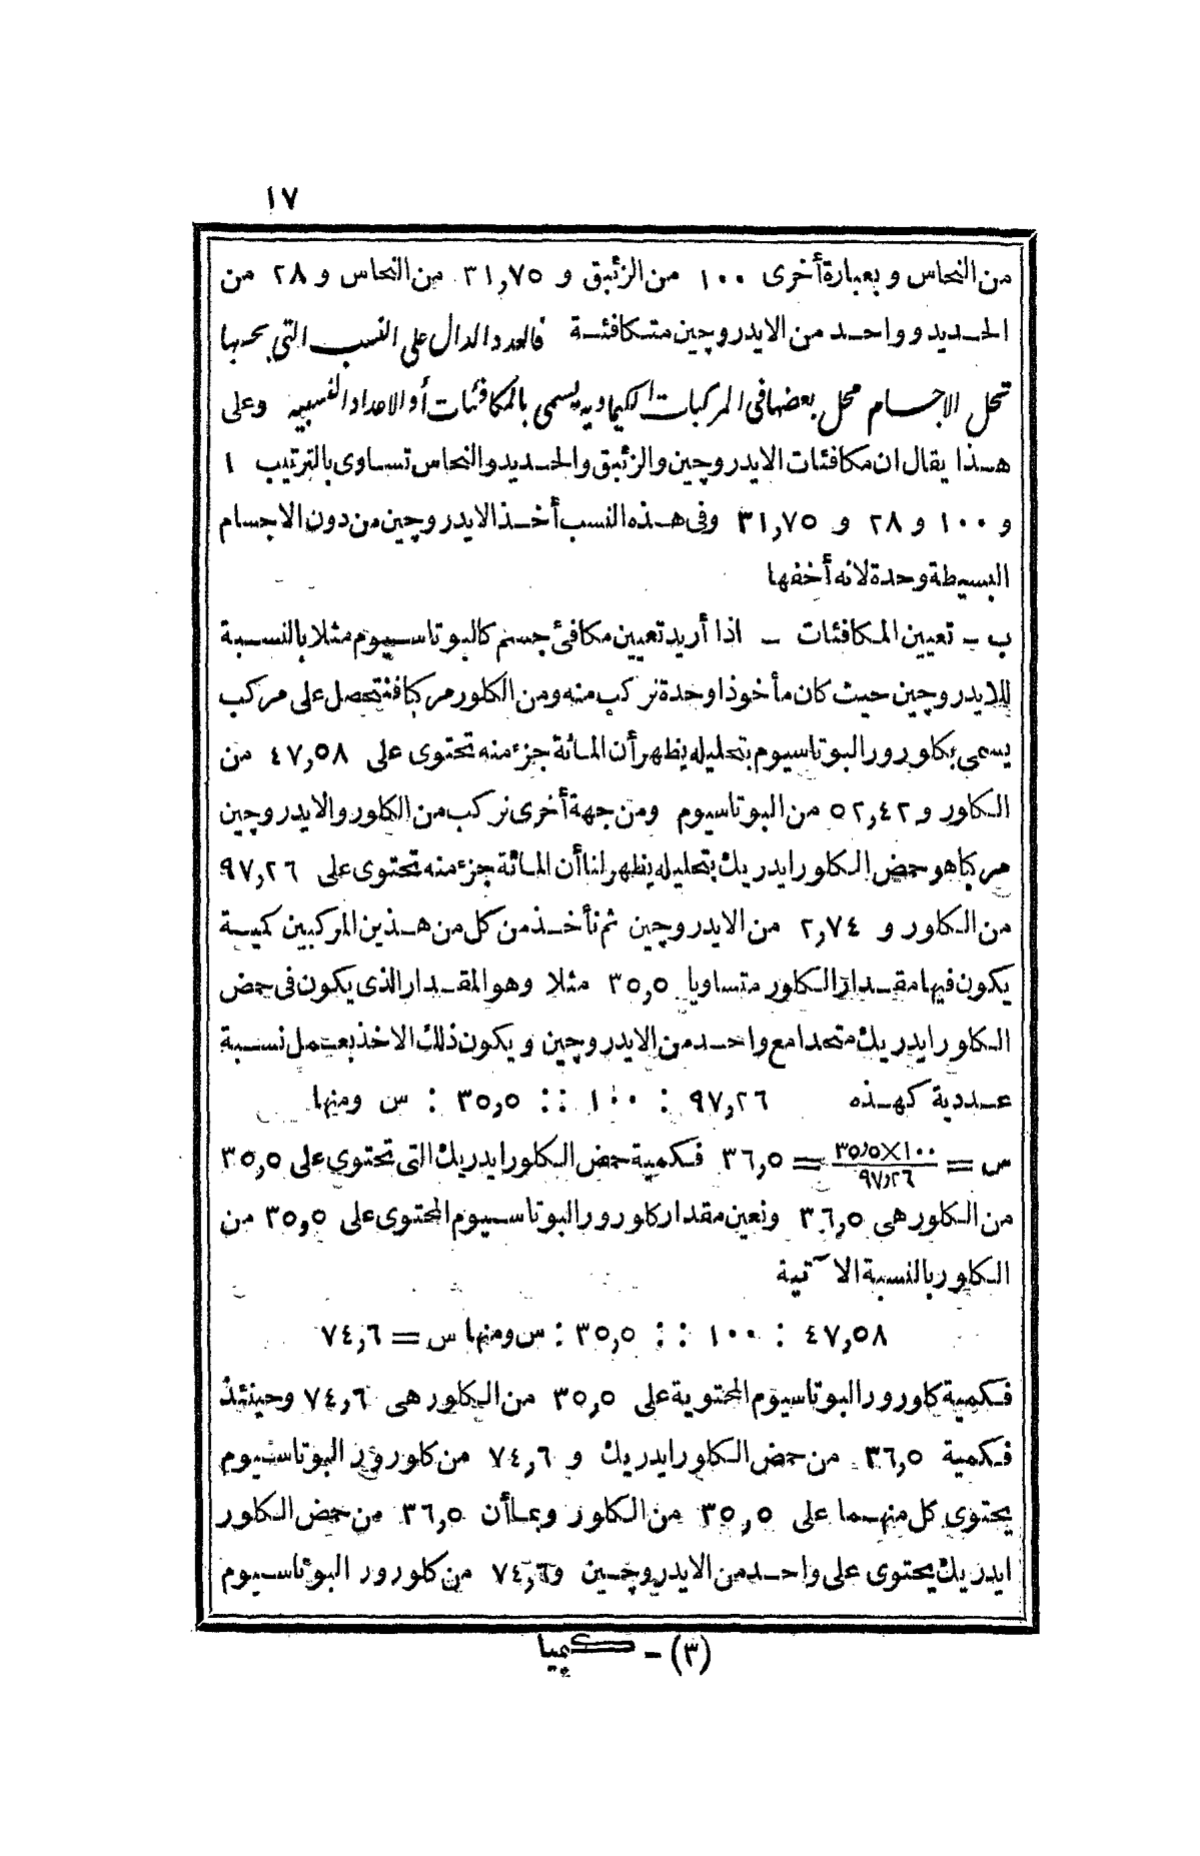 ١٧
من النحاس وبعبارة أخرى ١٠٠ من الزئبق و ٣١,٧٥ من النحاس و ٢٨ من
الحديد وواحد من الايدروچين متكافئة فالعدد الدال على النسب التى بحسبها
تحل الاجسام محل بعضها فى المركبات الكيماويه يسمى بالمكافئات أو الاعداد النسبيه وعلى
هذا يقال ان مكافئات الايدروچين والزئبق والحديد والنحاس تساوى بالترتيب ١
و ١٠٠ و ٢٨ و ٣١,٧٥ وفى هذه النسب أخذ الايدروچين من دون الاجسام
البسيطة وحدة لانه أخفها
ب - تعيين المكافئات - اذا أريد تعيين مكافئ جسم كالبوتاسيوم مثلا بالنسبة
للايدروچين حيث كان مأخوذا وحدة نركب منه ومن الكلور مركبا فنتحصل على مركب
يسمى بكلورور البوتاسيوم بتحليله يظهر أن المائة جزء منه تحتوى على ٤٧,٥٨ من
الكلور و ٥٢,٤٢ من البوتاسيوم ومن جهة أخرى نركب من الكلور والايدروچين
مركبا هو حمض الكلور ايدريك بتحليله يظهر لنا أن المائة جزء منه تحتوى على ٩٧,٢٦
من الكلور و ٢,٧٤ من الايدروچين ثم نأخذ من كل من هذين المركبين كمية
يكون فيها مقدار الكلور متساويا ٣٥,٥ مثلا وهو المقدار الذى يكون فى حمض
الكلور ايدريك متحدا مع واحد من الايدروچين ويكون ذلك الاخذ بعمل نسبة
عددية كهذه ٩٧,٢٦ : ١٠٠ :: ٣٥,٥ : س ومنها
س = ١٠٠×٣٥,٥ / ٩٧,٢٦ = ٣٦,٥ فكمية حمض الكلور ايدريك التى تحتوى على ٣٥,٥
من الكلور هى ٣٦,٥ ونعين مقدار كلورور البوتاسيوم المحتوى على ٣٥,٥ من
الكلور بالنسبة الآتية
٤٧,٥٨ : ١٠٠ :: ٣٥,٥ : س ومنها س = ٧٤,٦
فكمية كلورور البوتاسيوم المحتوية على ٣٥,٥ من الكلور هى ٧٤,٦ وحينئذ
فكمية ٣٦,٥ من حمض الكلور ايدريك و ٧٤,٦ من كلورور البوتاسيوم
يحتوى كل منهما على ٣٥,٥ من الكلور وبما أن ٣٦,٥ من حمض الكلور
ايدريك يحتوى على واحد من الايدروچين و ٧٤,٦ من كلورور البوتاسيوم
(٣) - كيميا